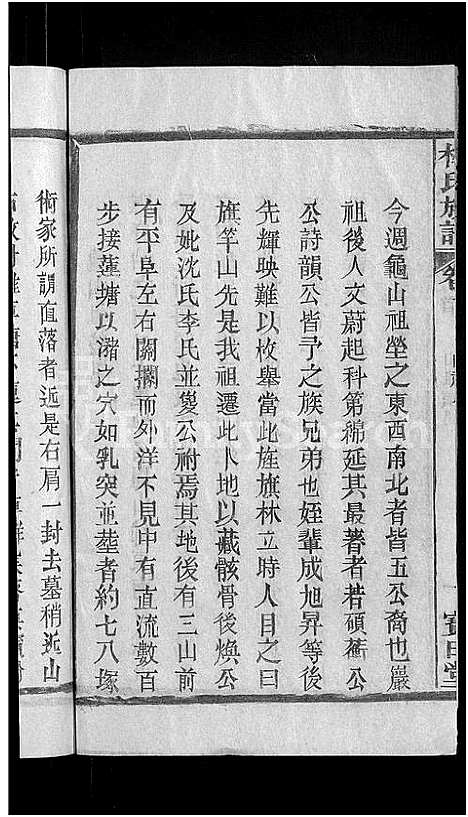 氏族譜
今週龜山祖塋之東西南北者皆五公裔也巖
祖後人文蔚起科第綿延其最著者若碩衝公
公詩韻公皆予之族兄弟也姪輩成旭昇等後
先輝映難以枚舉當此旌旗林立時人目之曰
旗竿山先是我祖遷此卜地以藏骸骨後煥公
及妣沈氏李氏並夐公祔焉其地後有三山前
有平阜左右關攔而外洋不見中有直流數百
步接蓮塘以潴之穴如乳突並塟者約七八塚
術家所謂直落者近是右肩一封去墓稍近山